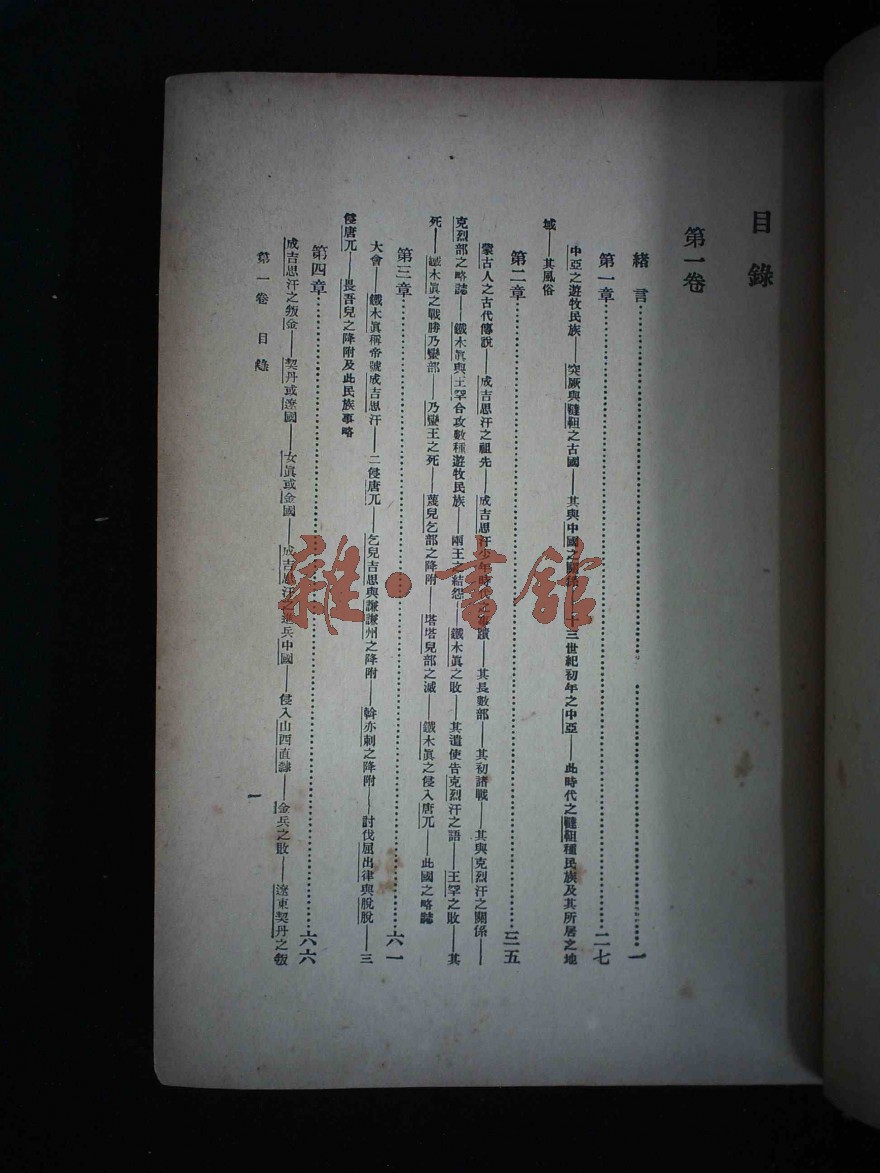 目錄
第一卷
緒言一
第一章二七
中亞之遊牧民族——突厥與韃靼之古國——其與中國之關係——十三世紀初年之中亞——此時代之韃靼種民族及其所居之地
域——其風俗
第二章三五
蒙古人之古代傳說——成吉思汗之祖先——成吉思汗少年時代之事蹟——其長數部——其初諸戰——其與克烈汗之關係——
克烈部之略誌——鐵木眞與王罕合攻數種遊牧民族——兩王之結怨——鐵木眞之敗——其遣使告克烈汗之語——王罕之敗——其
死——鐵木眞之戰勝乃蠻部——乃蠻王之死——蔑兒乞部之降附——塔塔兒部之滅——鐵木眞之侵入唐兀——此國之略誌
第三章六一
大會——鐵木眞稱帝號成吉思汗——二侵唐兀——乞兒吉思與謙謙州之降附——斡亦剌之降附——討伐屈出律與脫脫——三
侵唐兀——畏吾兒之降附及此民族事略
第四章六六
成吉思汗之叛金——契丹或遼國——女眞或金國——成吉思汗之進兵中國——侵入山西直隸——金兵之敗——遼東契丹之叛
第一卷 目錄
一
雜·書館